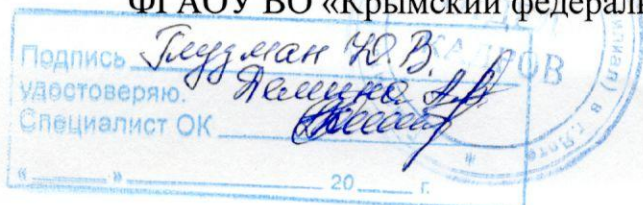 ФГАОУ ВО «Крымский федераль
Подпись Глузман Ю.В.
удостоверяю.
Специалист ОК
« » 20 г.
КАДРОВ